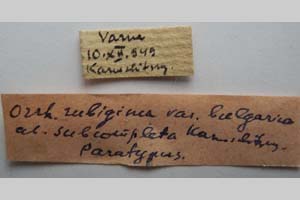 Varna
10.XII.949
Karnoschitzky.
Orrh. rubiginea var. bulgarica
ab. subcompleta Karnoschitzky.
Paratypus.